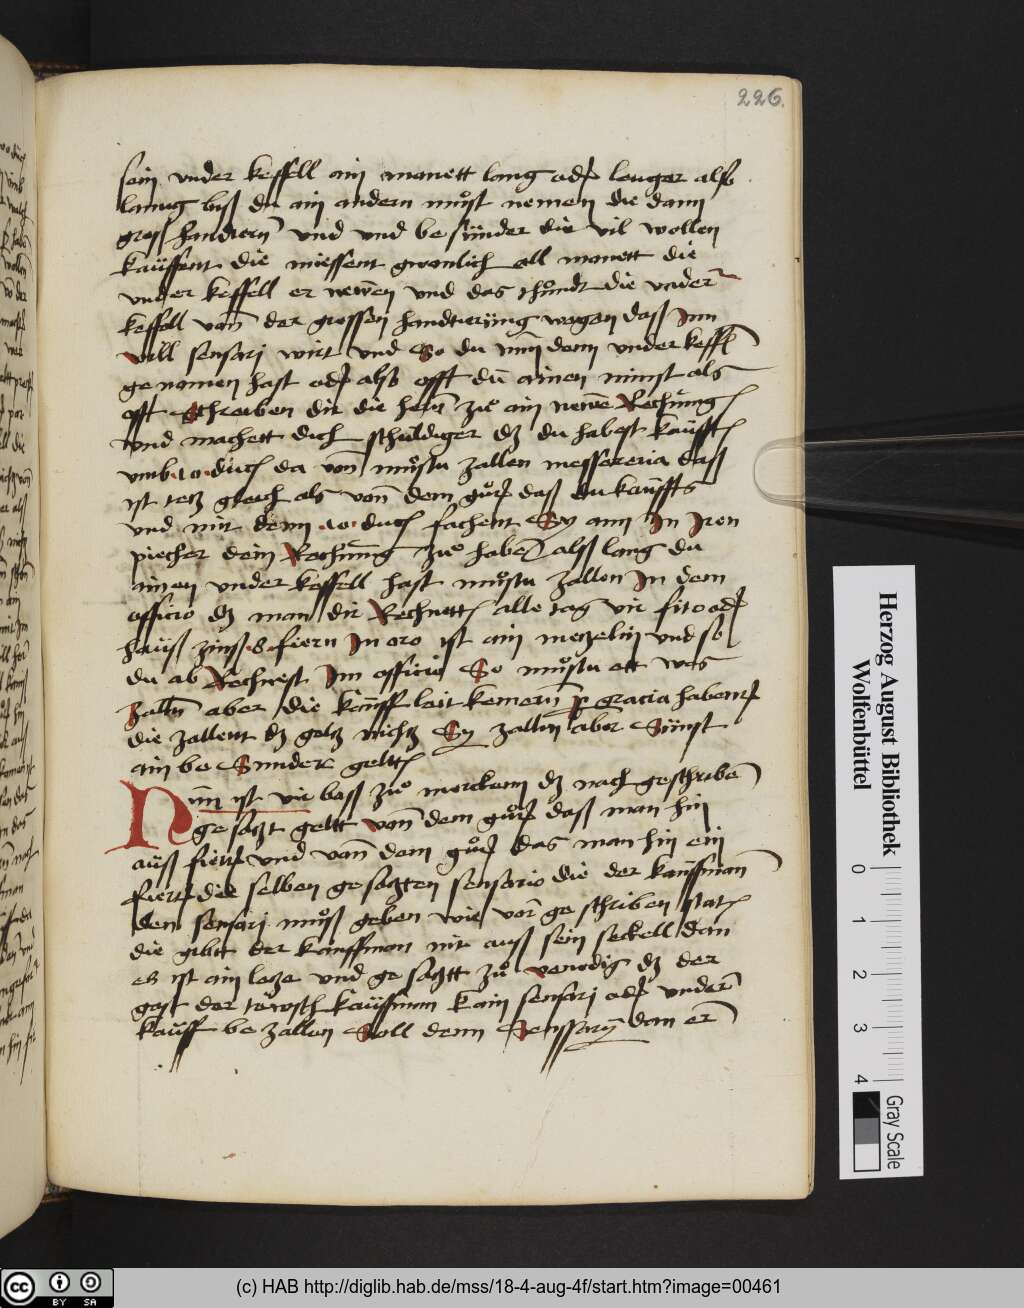 226.
sein vnder keffell ain monett lang odr lenger als
lanng biß du ain andern muͦst nemen die dann
groß handtern vnd vnd be sünder die vil wollen
kauffent die miessent gwonlich all monett die
vnder keffell er newen vnd das thuͦndt die vnder
keffell vonn der grossen handtierung wegen daß Inn
vill sensarj wirt vnd So du nun denn vnder keffl
genomen hast odr als offt du ainen nimst als
offt Schreiben dir die herrn zuͦ ain newe Rechnung
vnd machett dich schuldiger dz du habest kaufft
vmb 10 duc da von muͦstu zallen messetteria daß
ist gleich als vonn dem guͦt daß du kauffts
vnd mit denn 10 duc fachent Sy ann In Iren
piecher dein Rechnung zuͦ haben alß lang du
ainen vnder keffell hast muͦstu zallen In dem
officio dz man dir Rechnett alle tag vir fito odr
hauß zinß 8 fiern In oro ist ain metzelin vnd so
du ab Rechnest Im officio So muͦstu ett was
zalln aber die kauff leit kemerin p gracia habent
die zallent dz geltz nichtz Sy zalln aber Sunst
ain be Sunder geltt
Nun ist vir bass zuͦ mercken dz nach geschriben
gesatzt geltt vonn dem guͦt daß man hin
auß fiert vnd vonn dem guͦt das man hin ein
fiert die selben gesatzten sensario die der kauffman
den sensarj muͦß geben wie vor geschriben stat
die gibtt der kauffman nit auß sein seckell dan
es ist ain letze vnd gesatztt zuͦ venedig dz der
gast der teiwsch kauffman kain sensarj odr vnder
kauff bezallen Soll denn Senssary dan er
Herzog August Bibliothek
Wolfenbüttel
0 1 2 3 4
Gray Scale
cc BY SA
(c) HAB http://diglib.hab.de/mss/18-4-aug-4f/start.htm?image=00461